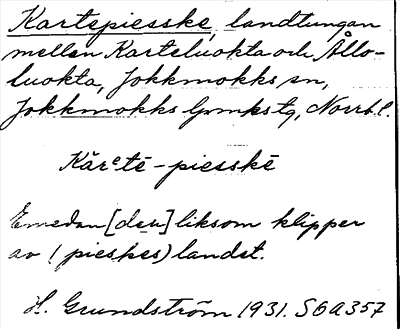 Kartepiesske, landtungan
mellan Karteluokta och Ållo-
luokta, Jokkmokks sn,
Jokkmokks lpmkstg, Norrb. l.
Kārᵉtē-piesskē
Emedan [den] liksom klipper
av (pieskes) landet.
H. Grundström 1931. SOA357